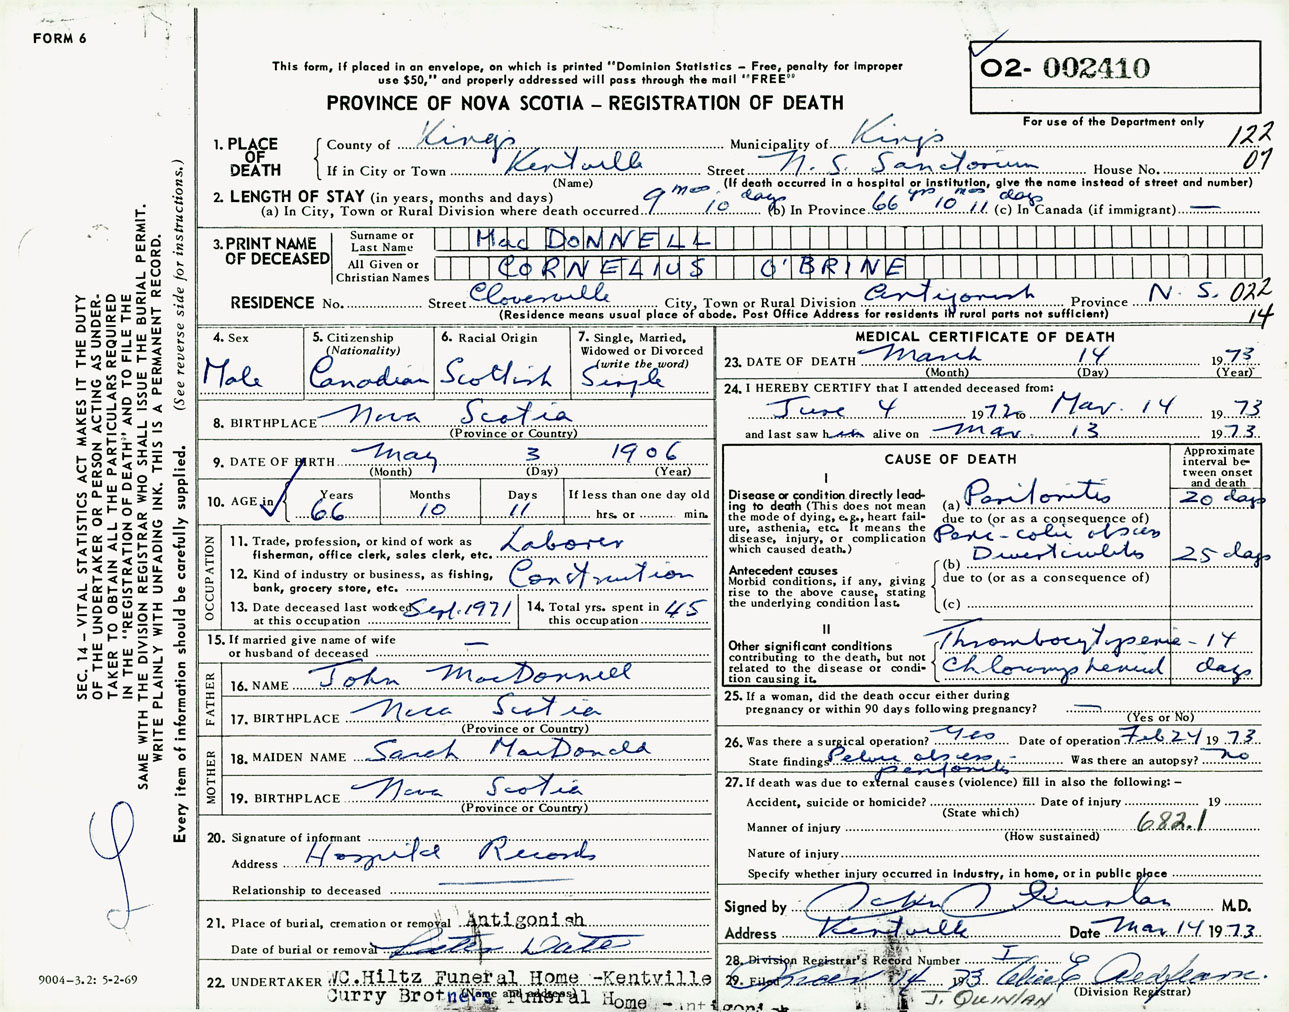 FORM 6
This form, if placed in an envelope, on which is printed "Dominion Statistics – Free, penalty for improper
use $50," and properly addressed will pass through the mail "FREE"
O2- 002410
PROVINCE OF NOVA SCOTIA – REGISTRATION OF DEATH
For use of the Department only
1. PLACE OF DEATH
County of Kings Municipality of Kings 122
If in City or Town Kentville Street N. S. Sanctorium House No. 07
(Name) (If death occurred in a hospital or institution, give the name instead of street and number)
2. LENGTH OF STAY (in years, months and days)
(a) In City, Town or Rural Division where death occurred 9 mos 10 days (b) In Province 66 yrs 10 mos 11 days (c) In Canada (if immigrant) —
3. PRINT NAME OF DECEASED
Surname or Last Name Mac DONNELL
All Given or Christian Names CORNELIUS O'BRINE
RESIDENCE No. Street Cloverville City, Town or Rural Division Antigonish Province N. S. 022
(Residence means usual place of abode. Post Office Address for residents in rural parts not sufficient) 14
4. Sex Male
5. Citizenship (Nationality) Canadian
6. Racial Origin Scottish
7. Single, Married, Widowed or Divorced (write the word) Single
8. BIRTHPLACE Nova Scotia
(Province or Country)
9. DATE OF BIRTH May 3 1906
(Month) (Day) (Year)
10. AGE in Years 66 Months 10 Days 11 If less than one day old hrs. or min.
OCCUPATION
11. Trade, profession, or kind of work as fisherman, office clerk, sales clerk, etc. Laborer
12. Kind of industry or business, as fishing, bank, grocery store, etc. Construction
13. Date deceased last worked at this occupation Sept. 1971
14. Total yrs. spent in this occupation 45
15. If married give name of wife or husband of deceased —
FATHER
16. NAME John MacDonnell
17. BIRTHPLACE Nova Scotia
(Province or Country)
MOTHER
18. MAIDEN NAME Sarah MacDonald
19. BIRTHPLACE Nova Scotia
(Province or Country)
20. Signature of informant
Address Hospital Records
Relationship to deceased
21. Place of burial, cremation or removal Antigonish
Date of burial or removal Later Date
22. UNDERTAKER WC.Hiltz Funeral Home -Kentville
(Name and address)
Curry Brothers Funeral Home -Antigonish
MEDICAL CERTIFICATE OF DEATH
23. DATE OF DEATH March 14 1973
(Month) (Day) (Year)
24. I HEREBY CERTIFY that I attended deceased from:
June 4 1972 to Mar. 14 1973
and last saw him alive on Mar. 13 1973
CAUSE OF DEATH
Approximate interval between onset and death
I
Disease or condition directly leading to death (This does not mean the mode of dying, e.g., heart failure, asthenia, etc. It means the disease, injury, or complication which caused death.)
(a) Peritonitis 20 days
due to (or as a consequence of)
Peri-colic abscess
(b) Diverticulitis 25 days
due to (or as a consequence of)
(c)
Antecedent causes
Morbid conditions, if any, giving rise to the above cause, stating the underlying condition last.
II
Other significant conditions contributing to the death, but not related to the disease or condition causing it.
Thrombocytopenia - 14
Chloramphenicol days
25. If a woman, did the death occur either during pregnancy or within 90 days following pregnancy? —
(Yes or No)
26. Was there a surgical operation? Yes Date of operation Feb 24 1973
State findings Pelvic abscess - peritonitis Was there an autopsy? No
27. If death was due to external causes (violence) fill in also the following: –
Accident, suicide or homicide? Date of injury 19
(State which)
Manner of injury 682.1
(How sustained)
Nature of injury
Specify whether injury occurred in industry, in home, or in public place
Signed by M.D.
Address Kentville Date Mar. 14 1973
28. Division Registrar's Record Number I
29. Filed 14 1973
(Division Registrar)
J. QUINLAN
SEC. 14 – VITAL STATISTICS ACT MAKES IT THE DUTY
OF THE UNDERTAKER OR PERSON ACTING AS UNDER-
TAKER TO OBTAIN ALL THE PARTICULARS REQUIRED
IN THE "REGISTRATION OF DEATH" AND TO FILE THE
SAME WITH THE DIVISION REGISTRAR WHO SHALL ISSUE THE BURIAL PERMIT.
WRITE PLAINLY WITH UNFADING INK. THIS IS A PERMANENT RECORD.
Every item of information should be carefully supplied. (See reverse side for instructions.)
9004-3.2: 5-2-69